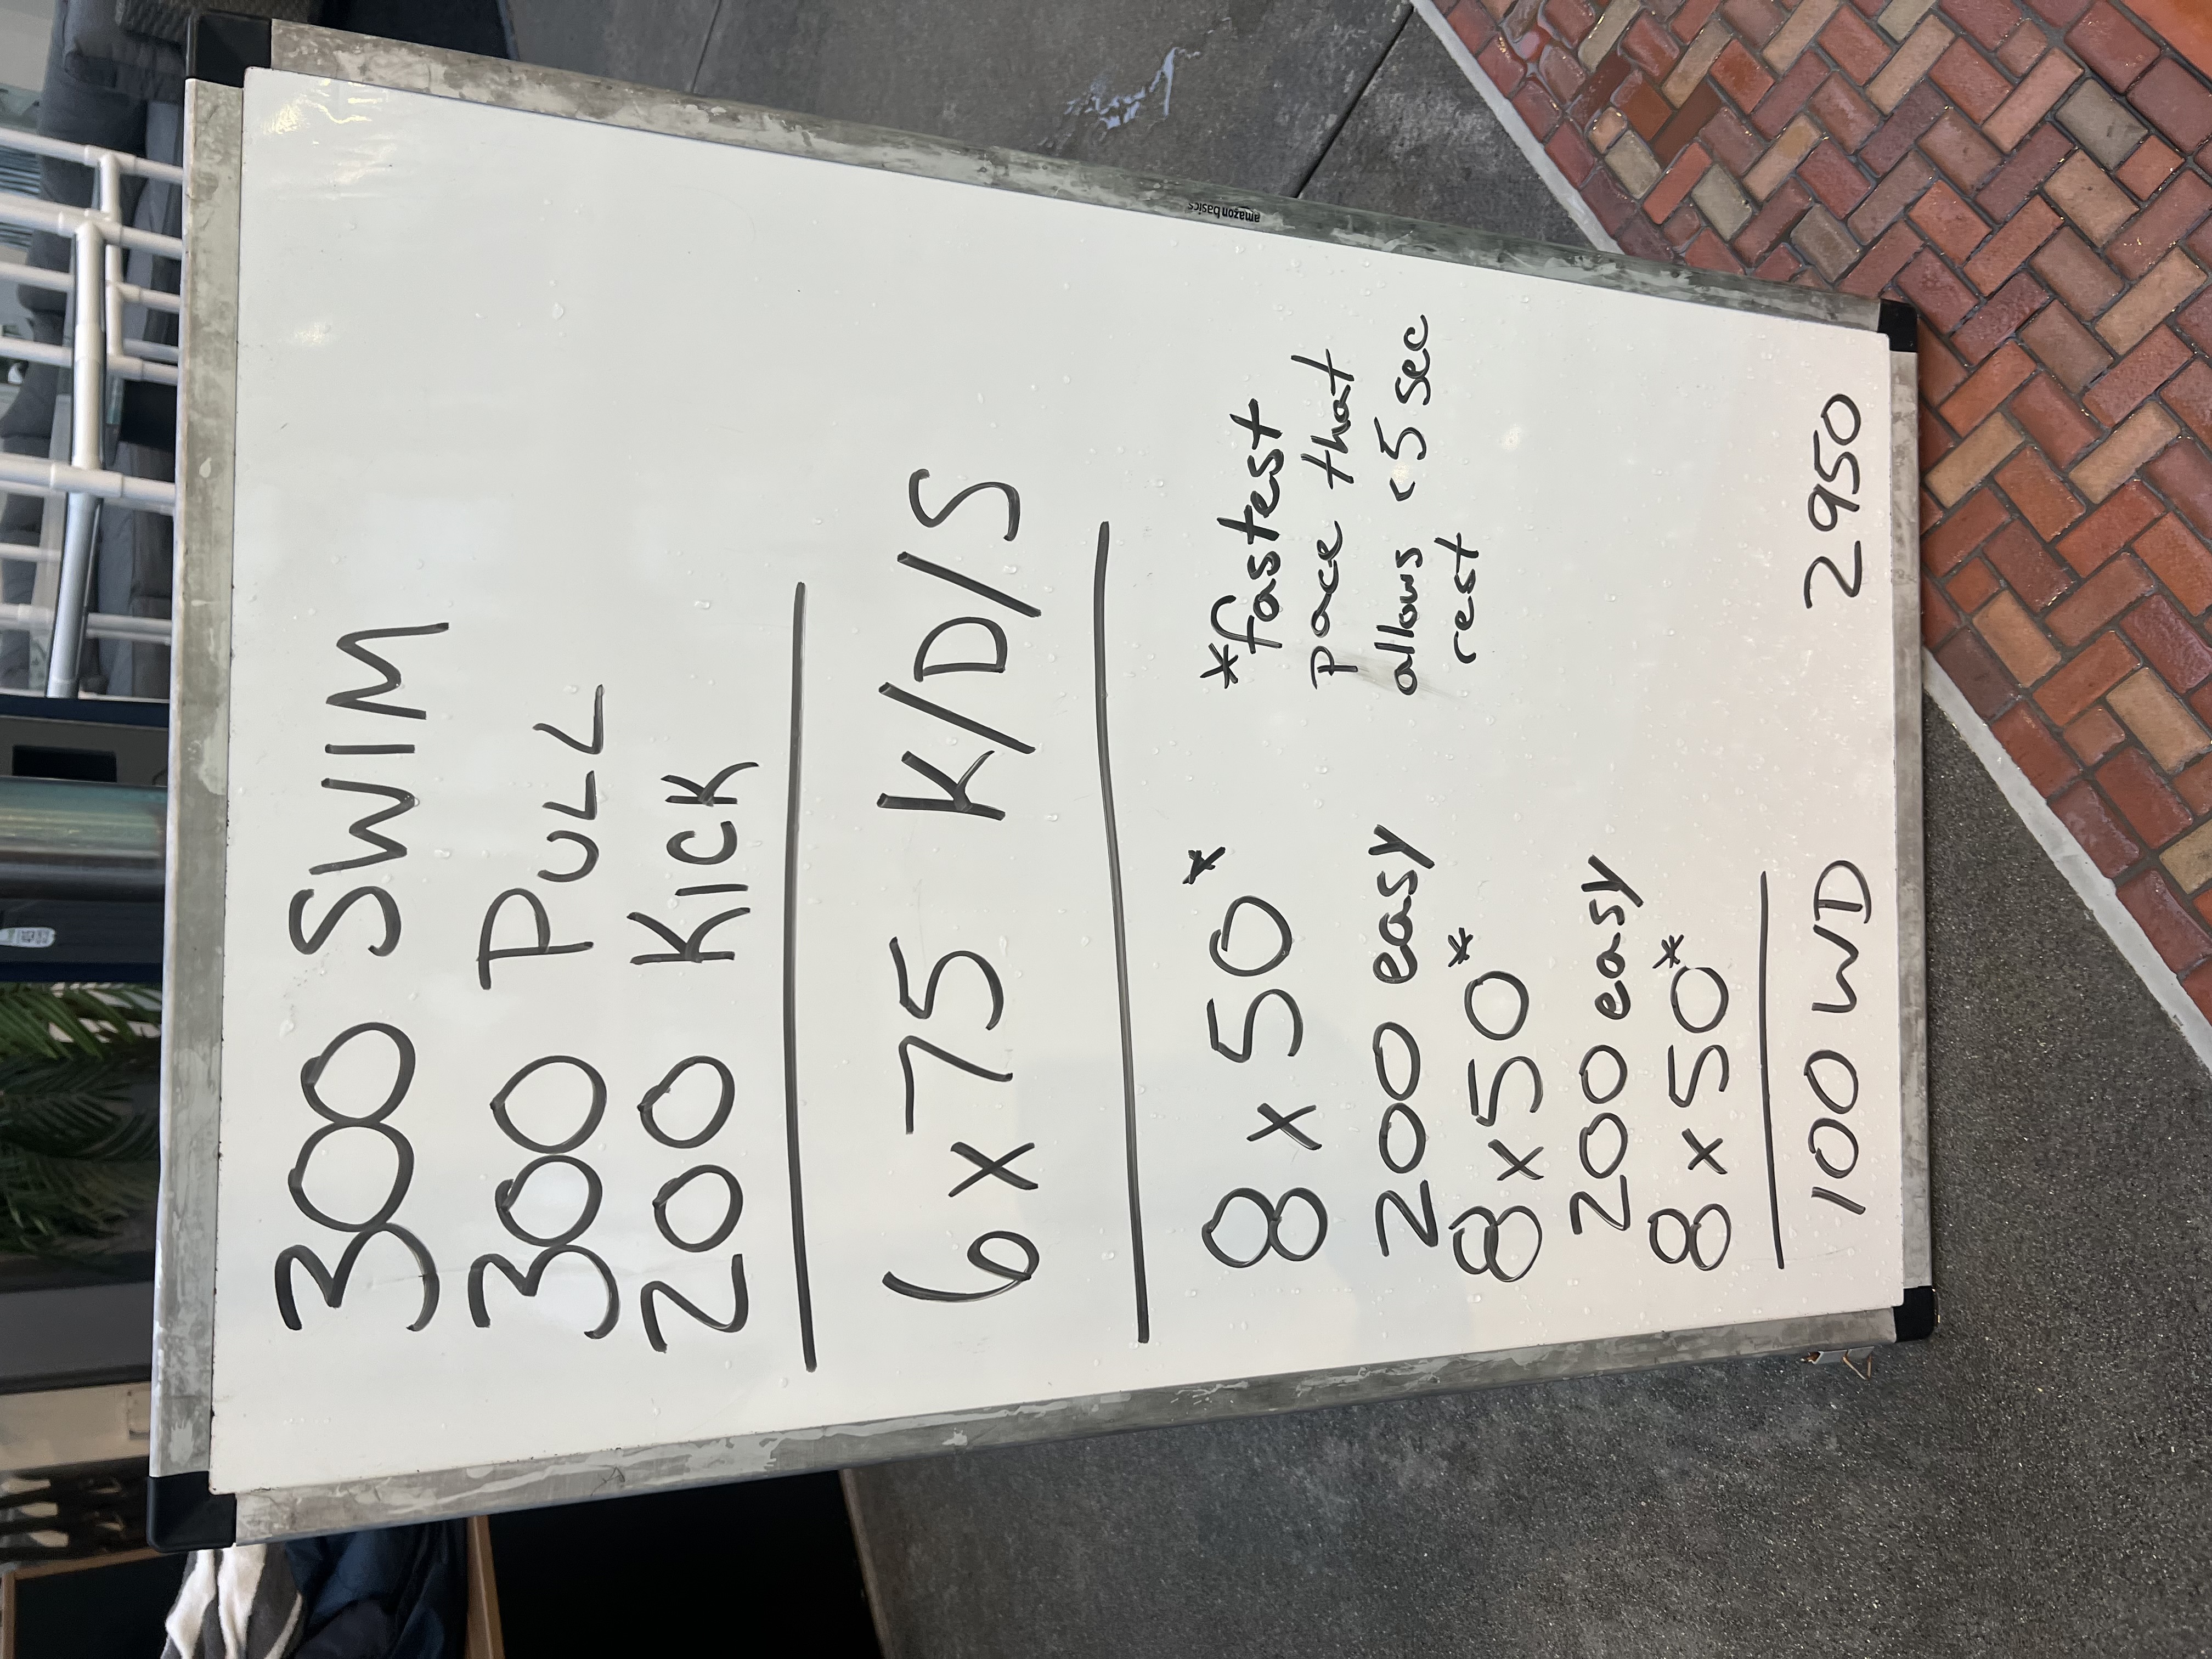 300 SWIM
300 PULL
200 KICK
6 x 75 K/D/S
8 x 50*
200 easy
8 x 50*
200 easy
8 x 50*
*fastest
pace that
allows <5 sec
rest
100 WD
2950
amazon basics